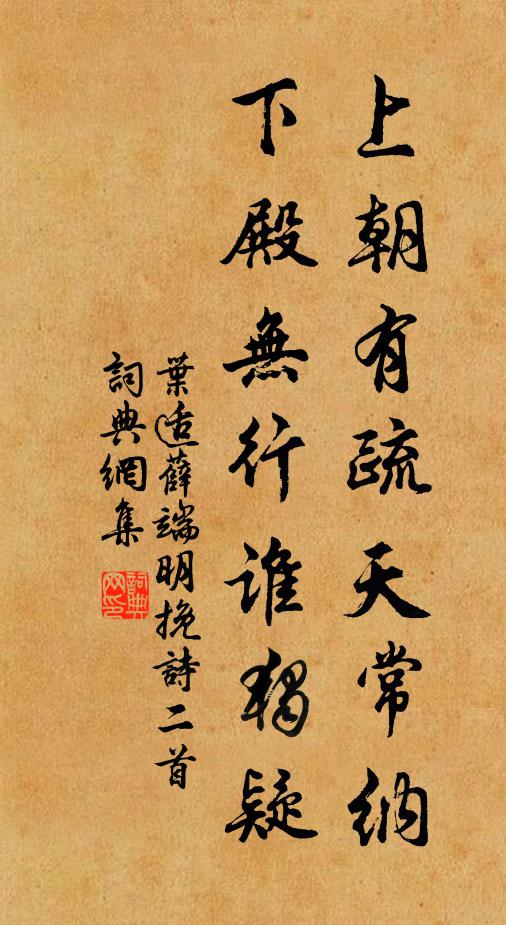 上朝有疏天常納
下殿無行誰獨疑
葉適薛端明挽詩二首
詞典網集
詞典網印